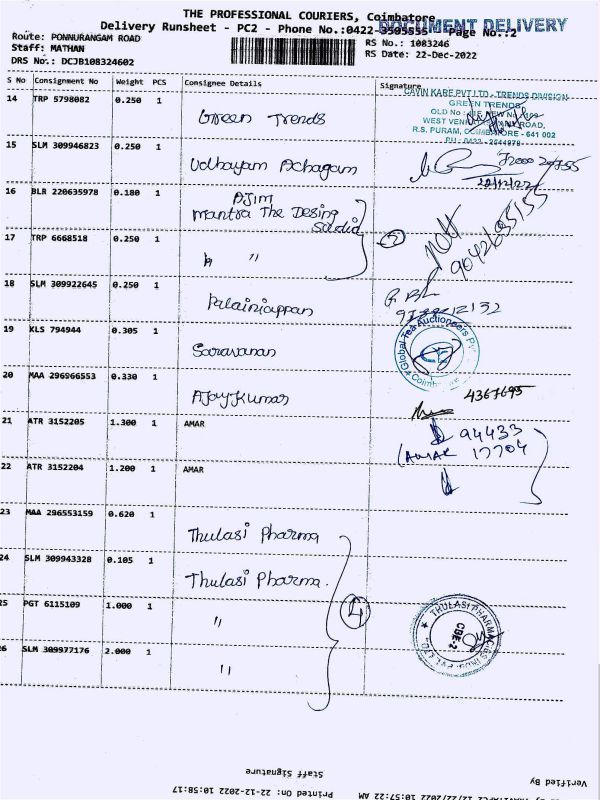 THE PROFESSIONAL COURIERS, Coimbatore
DOCUMENT DELIVERY
Delivery Runsheet - PC2 - Phone No.:0422-3505555 Page No.:2
Route: PONNURANGAM ROAD
RS No.: 1083246
Staff: MATHAN
RS Date: 22-Dec-2022
DRS No.: DCJB108324602
S No Consignment No Weight PCS Consignee Details Signature
CAVIN KARE PVT LTD - TRENDS DIVISION
GREEN TRENDS
14 TRP 5798082 0.250 1 Green Trends
OLD No
WEST VENK ROAD,
R.S. PURAM, COIMBATORE - 641 002
15 SLM 309946823 0.250 1
22/12/22
16 BLR 220635978 0.180 1 AJim
Mantra The Desing
17 TRP 6668518 0.250 1 "
9042655155
18 SLM 309922645 0.250 1 Palainiappan
19 KLS 794944 0.305 1 Saravanan
Global Tea Auctioneers
20 MAA 296966553 0.330 1 AJay Kumar
4367695
21 ATR 3152205 1.300 1 AMAR
94433
(AMAR 17704
22 ATR 3152204 1.200 1 AMAR
23 MAA 296553159 0.620 1 Thulasi Pharma
24 SLM 309943328 0.105 1 Thulasi Pharma.
25 PGT 6115109 1.000 1 "
4
THULASI PHARMACIES
CBE-2
26 SLM 309977176 2.000 1 "
Staff Signature
Verified By
Printed On: 22-12-2022 10:58:17
22/12/2022 10:57:22 AM